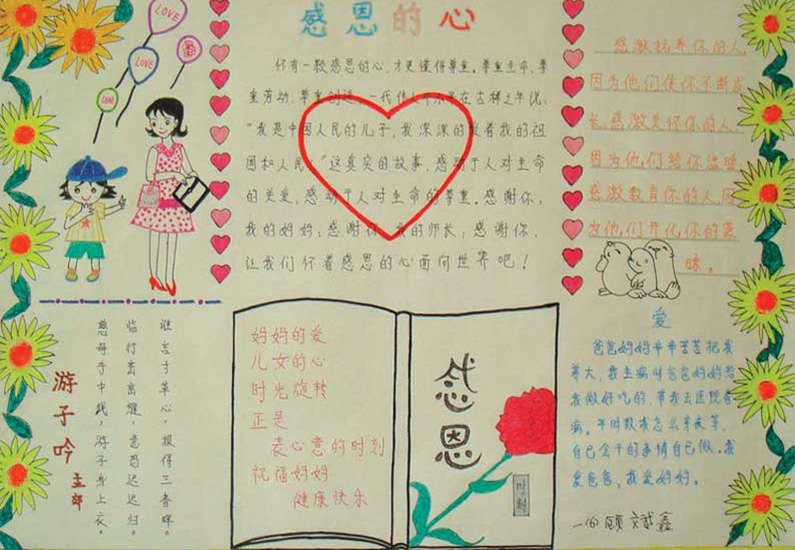 感恩的心
怀有一颗感恩的心,才更懂得尊重。尊重生命,尊
重劳动,尊重创造。一代伟人邓小平在古稀之年说:
“我是中国人民的儿子,我深深的爱着我的祖
国和人民。”这真实的故事,感动了人对生命
的关爱,感动了人对生命的尊重。感谢你,
我的妈妈;感谢你,我的师长;感谢你,
让我们怀着感恩的心面向世界吧!
感激抚养你的人,
因为他们使你不断成
长,感激关怀你的人,
因为他们给你温暖
感激教育你的人,因
为他们开化你的蒙
昧。
LOVE
LOVE
游子吟
孟郊
慈母手中线,游子身上衣。
临行密密缝,意恐迟迟归。
谁言寸草心,报得三春晖。
妈妈的爱
儿女的心
时光旋转
正是
表心意的时刻
祝福妈妈
健康快乐
感恩
爱
爸爸妈妈辛辛苦苦把我
养大,我生病时爸爸妈妈给
我做好吃的,带我去医院看
病。平时教我怎么
自己会干的事情自己做。我
爱爸爸,我爱妈妈。
一(6) 顾